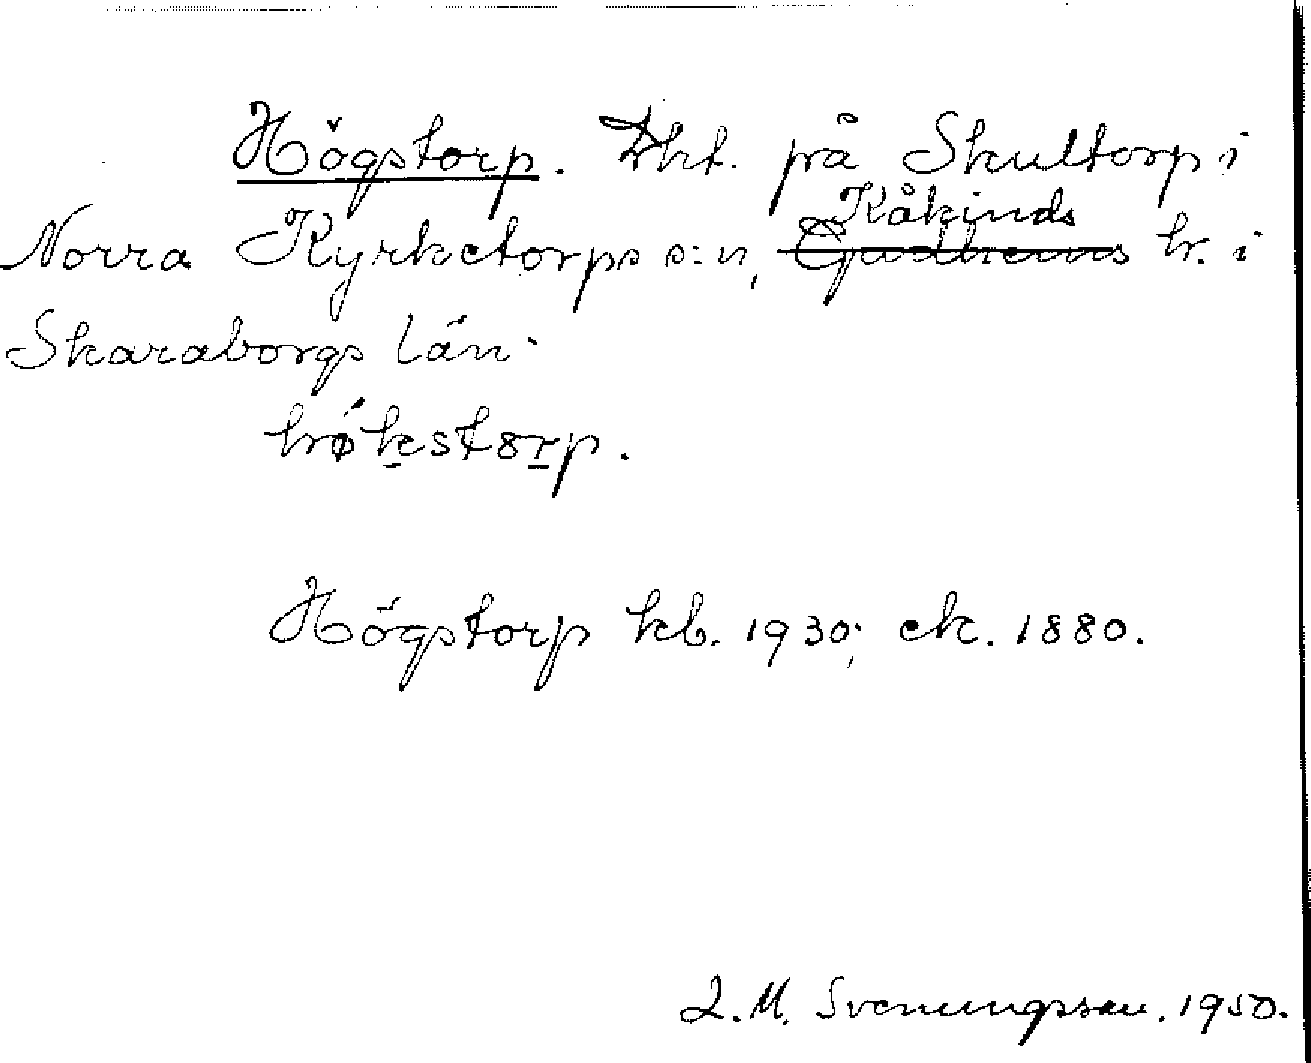 Högstorp. Tkt. på Skultorp i
Kåkinds
Norra Kyrketorps s:n, Gudhems hr. i
Skaraborgs län.
hǿkstorp.
Högstorp kb. 1930; ek. 1880.
L.M. Svenungsson. 1950.